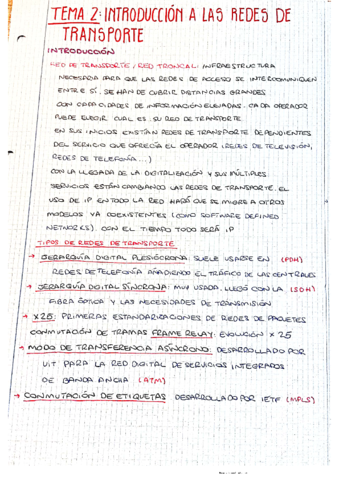 TEMA 2: INTRODUCCIÓN A LAS REDES DE
TRANSPORTE
INTRODUCCIÓN
RED DE TRANSPORTE / RED TRONCAL: INFRAESTRUCTURA
NECESARIA PARA QUE LAS REDES DE ACCESO SE INTERCOMUNIQUEN
ENTRE SÍ. SE HAN DE CUBRIR DISTANCIAS GRANDES
CON CAPACIDADES DE INFORMACIÓN ELEVADAS. CADA OPERADOR
PUEDE ELEGIR CUAL ES SU RED DE TRANSPORTE.
EN SUS INICIOS EXISTÍAN REDES DE TRANSPORTE DEPENDIENTES
DEL SERVICIO QUE OFRECÍA EL OPERADOR (REDES DE TELEVISIÓN,
REDES DE TELEFONÍA...)
CON LA LLEGADA DE LA DIGITALIZACIÓN Y SUS MÚLTIPLES
SERVICIOS ESTÁN CAMBIANDO LAS REDES DE TRANSPORTE. EL
USO DE IP EN TODO LA RED HARÁ QUE SE MIGRE A OTROS
MODELOS YA COEXISTENTES (COMO SOFTWARE DEFINED
NETWORKS). CON EL TIEMPO TODO SERÁ IP
TIPOS DE REDES DE TRANSPORTE
→ JERARQUÍA DIGITAL PLESIÓCRONA: SUELE USARSE EN (PDH)
REDES DE TELEFONÍA AÑADIENDO EL TRÁFICO DE LAS CENTRALES
→ JERARQUÍA DIGITAL SÍNCRONA: MUY USADA, LLEGÓ CON LA (SDH)
FIBRA ÓPTICA Y LAS NECESIDADES DE TRANSMISIÓN
→ X25: PRIMERAS ESTANDARIZACIONES DE REDES DE PAQUETES
CONMUTACIÓN DE TRAMAS FRAME RELAY: EVOLUCIÓN X25
→ MODO DE TRANSFERENCIA ASÍNCRONO: DESARROLLADO POR
UIT PARA LA RED DIGITAL DE SERVICIOS INTEGRADOS
DE BANDA ANCHA (ATM)
→ CONMUTACIÓN DE ETIQUETAS: DESARROLLADO POR IETF (MPLS)